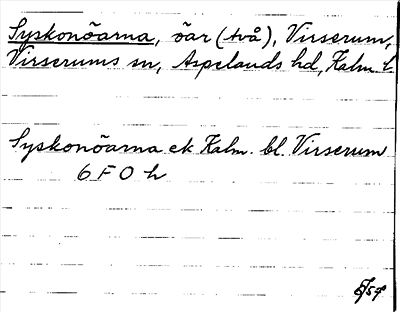 Syskonöarna, öar (två), Virserum,
Virserums sn, Aspelands hd, Kalm. l.
Syskonöarna ek Kalm. bl. Virserum
6 F O h